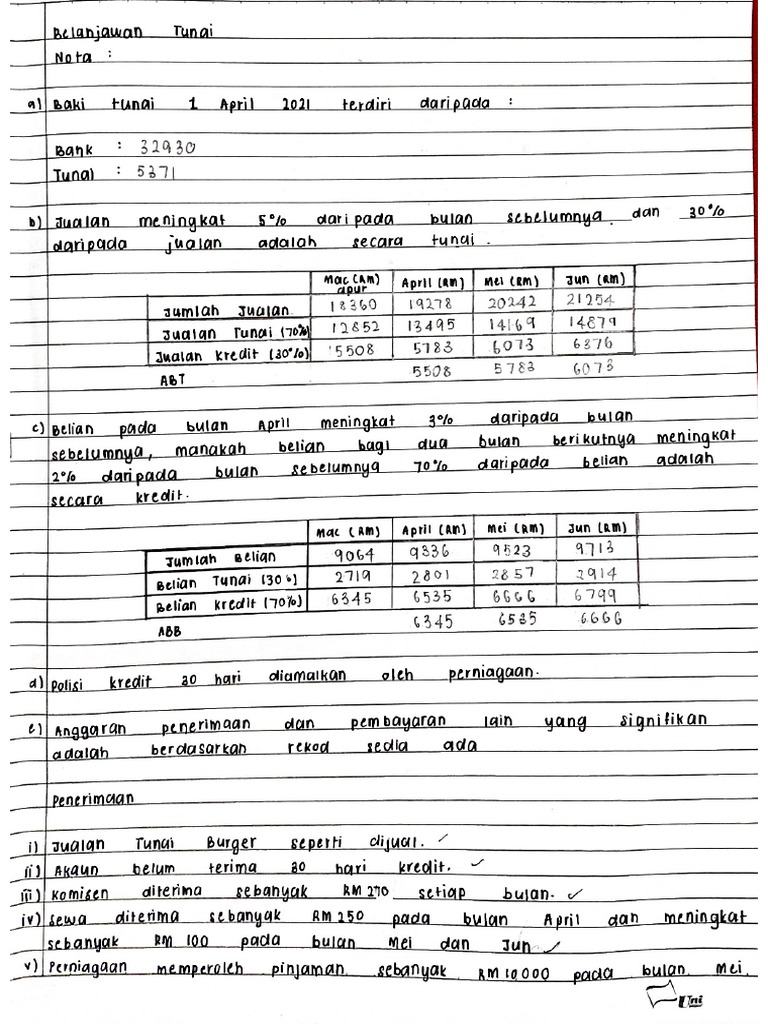 Belanjawan Tunai
Nota :
a) Baki tunai 1 April 2021 terdiri daripada :
Bank : 32930
Tunai : 5371
b) Jualan meningkat 5% daripada bulan sebelumnya dan 30%
daripada jualan adalah secara tunai.
Mac (RM) April (RM) Mei (RM) Jun (RM)
Jumlah Jualan 18360 19278 20242 21254
Jualan Tunai (70%) 12852 13495 14169 14879
Jualan Kredit (30%) 5508 5783 6073 6376
ABT 5508 5783 6073
c) Belian pada bulan April meningkat 3% daripada bulan
sebelumnya, manakah belian bagi dua bulan berikutnya meningkat
2% daripada bulan sebelumnya 70% daripada belian adalah
secara kredit.
Mac (RM) April (RM) Mei (RM) Jun (RM)
Jumlah Belian 9064 9336 9523 9713
Belian Tunai (30%) 2719 2801 2857 2914
Belian kredit (70%) 6345 6535 6666 6799
ABB 6345 6535 6666
d) Polisi kredit 30 hari diamalkan oleh perniagaan.
e) Anggaran penerimaan dan pembayaran lain yang signifikan
adalah berdasarkan rekod sedia ada
Penerimaan
i) Jualan Tunai Burger seperti dijual. ✓
ii) Akaun belum terima 30 hari kredit. ✓
iii) Komisen diterima sebanyak RM 270 setiap bulan. ✓
iv) Sewa diterima sebanyak RM 250 pada bulan April dan meningkat
sebanyak RM 100 pada bulan Mei dan Jun ✓
v) Perniagaan memperoleh pinjaman sebanyak RM 10000 pada bulan Mei.
Uni